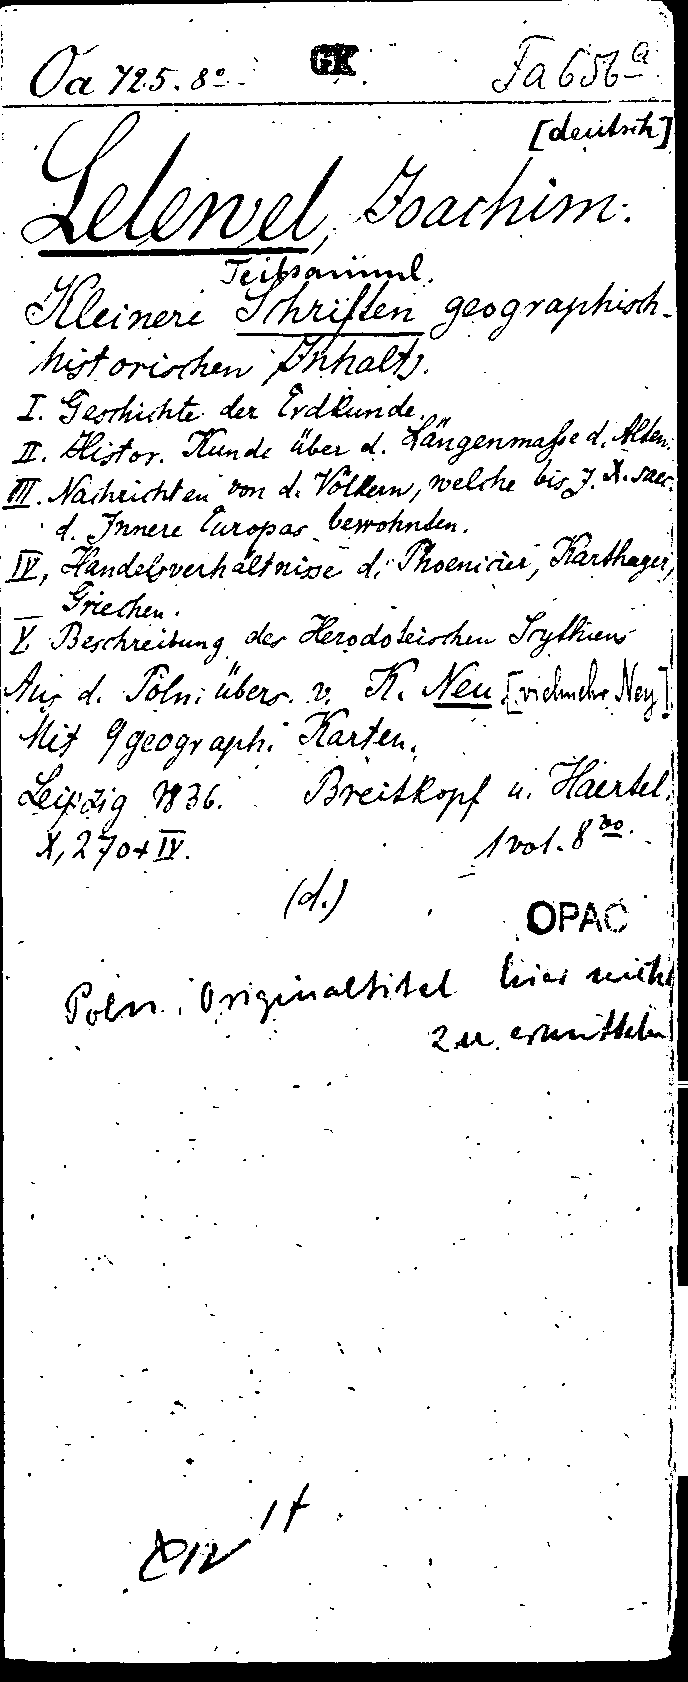 Oa 725. 8° GK Fa 656 a
[deutsch]
Lelewel, Joachim.
Teilsamml.
Kleinere Schriften geographisch-
historischen Inhalts.
I. Geschichte der Erdkunde.
II. Histor. Kunde über d. Längenmasse d. Alten.
III. Nachrichten von d. Völkern, welche bis z. X. saec.
d. Innere Europas bewohnten.
IV. Handelsverhältnisse d. Phoenicier, Karthager,
Griechen.
V. Beschreibung des Herodoteischen Scythiens
Aus d. Poln. übers. v. K. Neu [vielmehr Ney]
Mit 9 geograph. Karten.
Leipzig 1836. Breitkopf u. Haertel.
X, 270 + IV. 1 vol. 8vo.
(d.)
OPAC
Poln. Originaltitel hier nicht
zu ermitteln